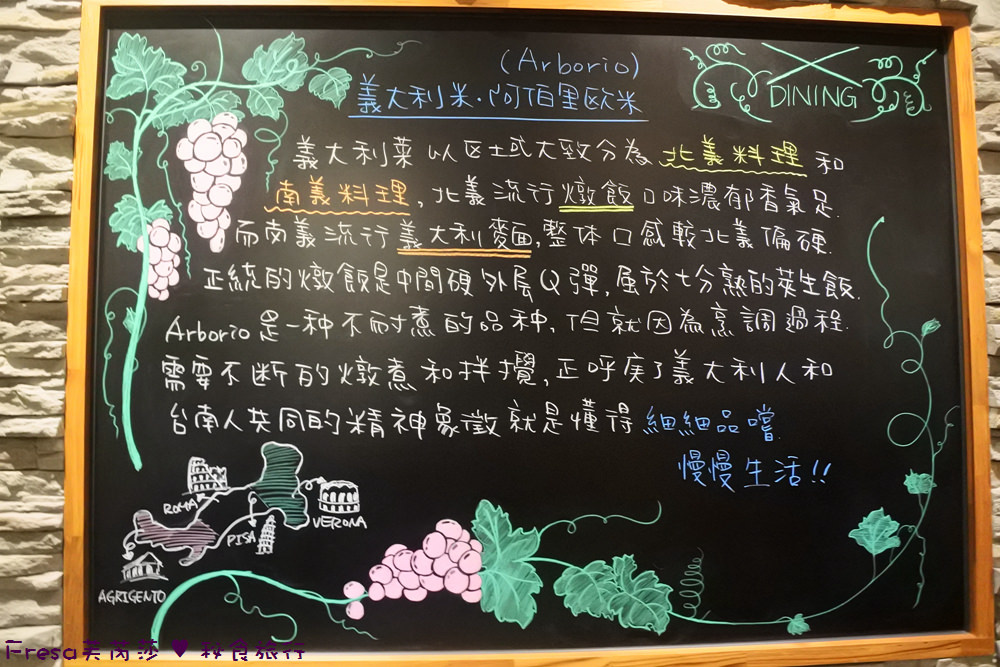 (Arborio)
義大利米·阿伯里欧米
DINING
義大利菜以区域大致分為北義料理和
南義料理,北義流行燉飯口味濃郁香氣足.
而南義流行義大利麵,整体口感較北義偏硬.
正統的燉飯是中間硬外层Q彈,属於七分熟的萊生飯.
Arborio是一种不耐煮的品种,但就因為烹調過程.
需要不断的燉煮和拌攪,正呼应了義大利人和
台南人共同的精神象徵就是懂得細細品嚐.
慢慢生活!!
ROMA
VERONA
PISA
AGRIGENTO
Fresa芙芮莎♥秋食旅行